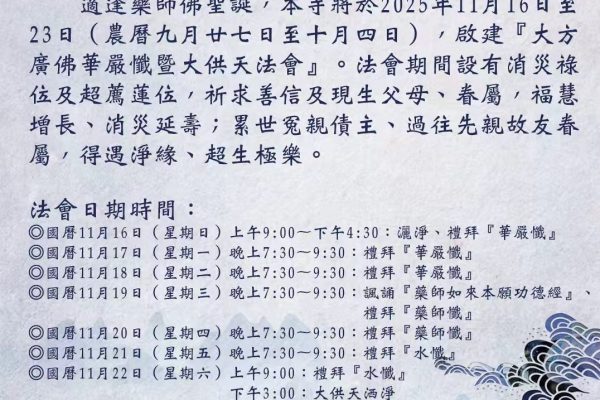 適逢藥師佛聖誕，本寺將於2025年11月16日至
23日（農曆九月廿七日至十月四日），啟建『大方
廣佛華嚴懺暨大供天法會』。法會期間設有消災祿
位及超薦蓮位，祈求善信及現生父母、眷屬，福慧
增長、消災延壽；累世冤親債主、過往先親故友眷
屬，得遇淨緣、超生極樂。
法會日期時間：
◎國曆11月16日（星期日）上午9:00～下午4:30：灑淨、禮拜『華嚴懺』
◎國曆11月17日（星期一）晚上7:30～9:30：禮拜『華嚴懺』
◎國曆11月18日（星期二）晚上7:30～9:30：禮拜『華嚴懺』
◎國曆11月19日（星期三）晚上7:30～9:30：諷誦『藥師如來本願功德經』、
禮拜『藥師懺』
◎國曆11月20日（星期四）晚上7:30～9:30：禮拜『藥師懺』
◎國曆11月21日（星期五）晚上7:30～9:30：禮拜『水懺』
◎國曆11月22日（星期六）上午9:00：禮拜『水懺』
下午3:00：大供天洒淨